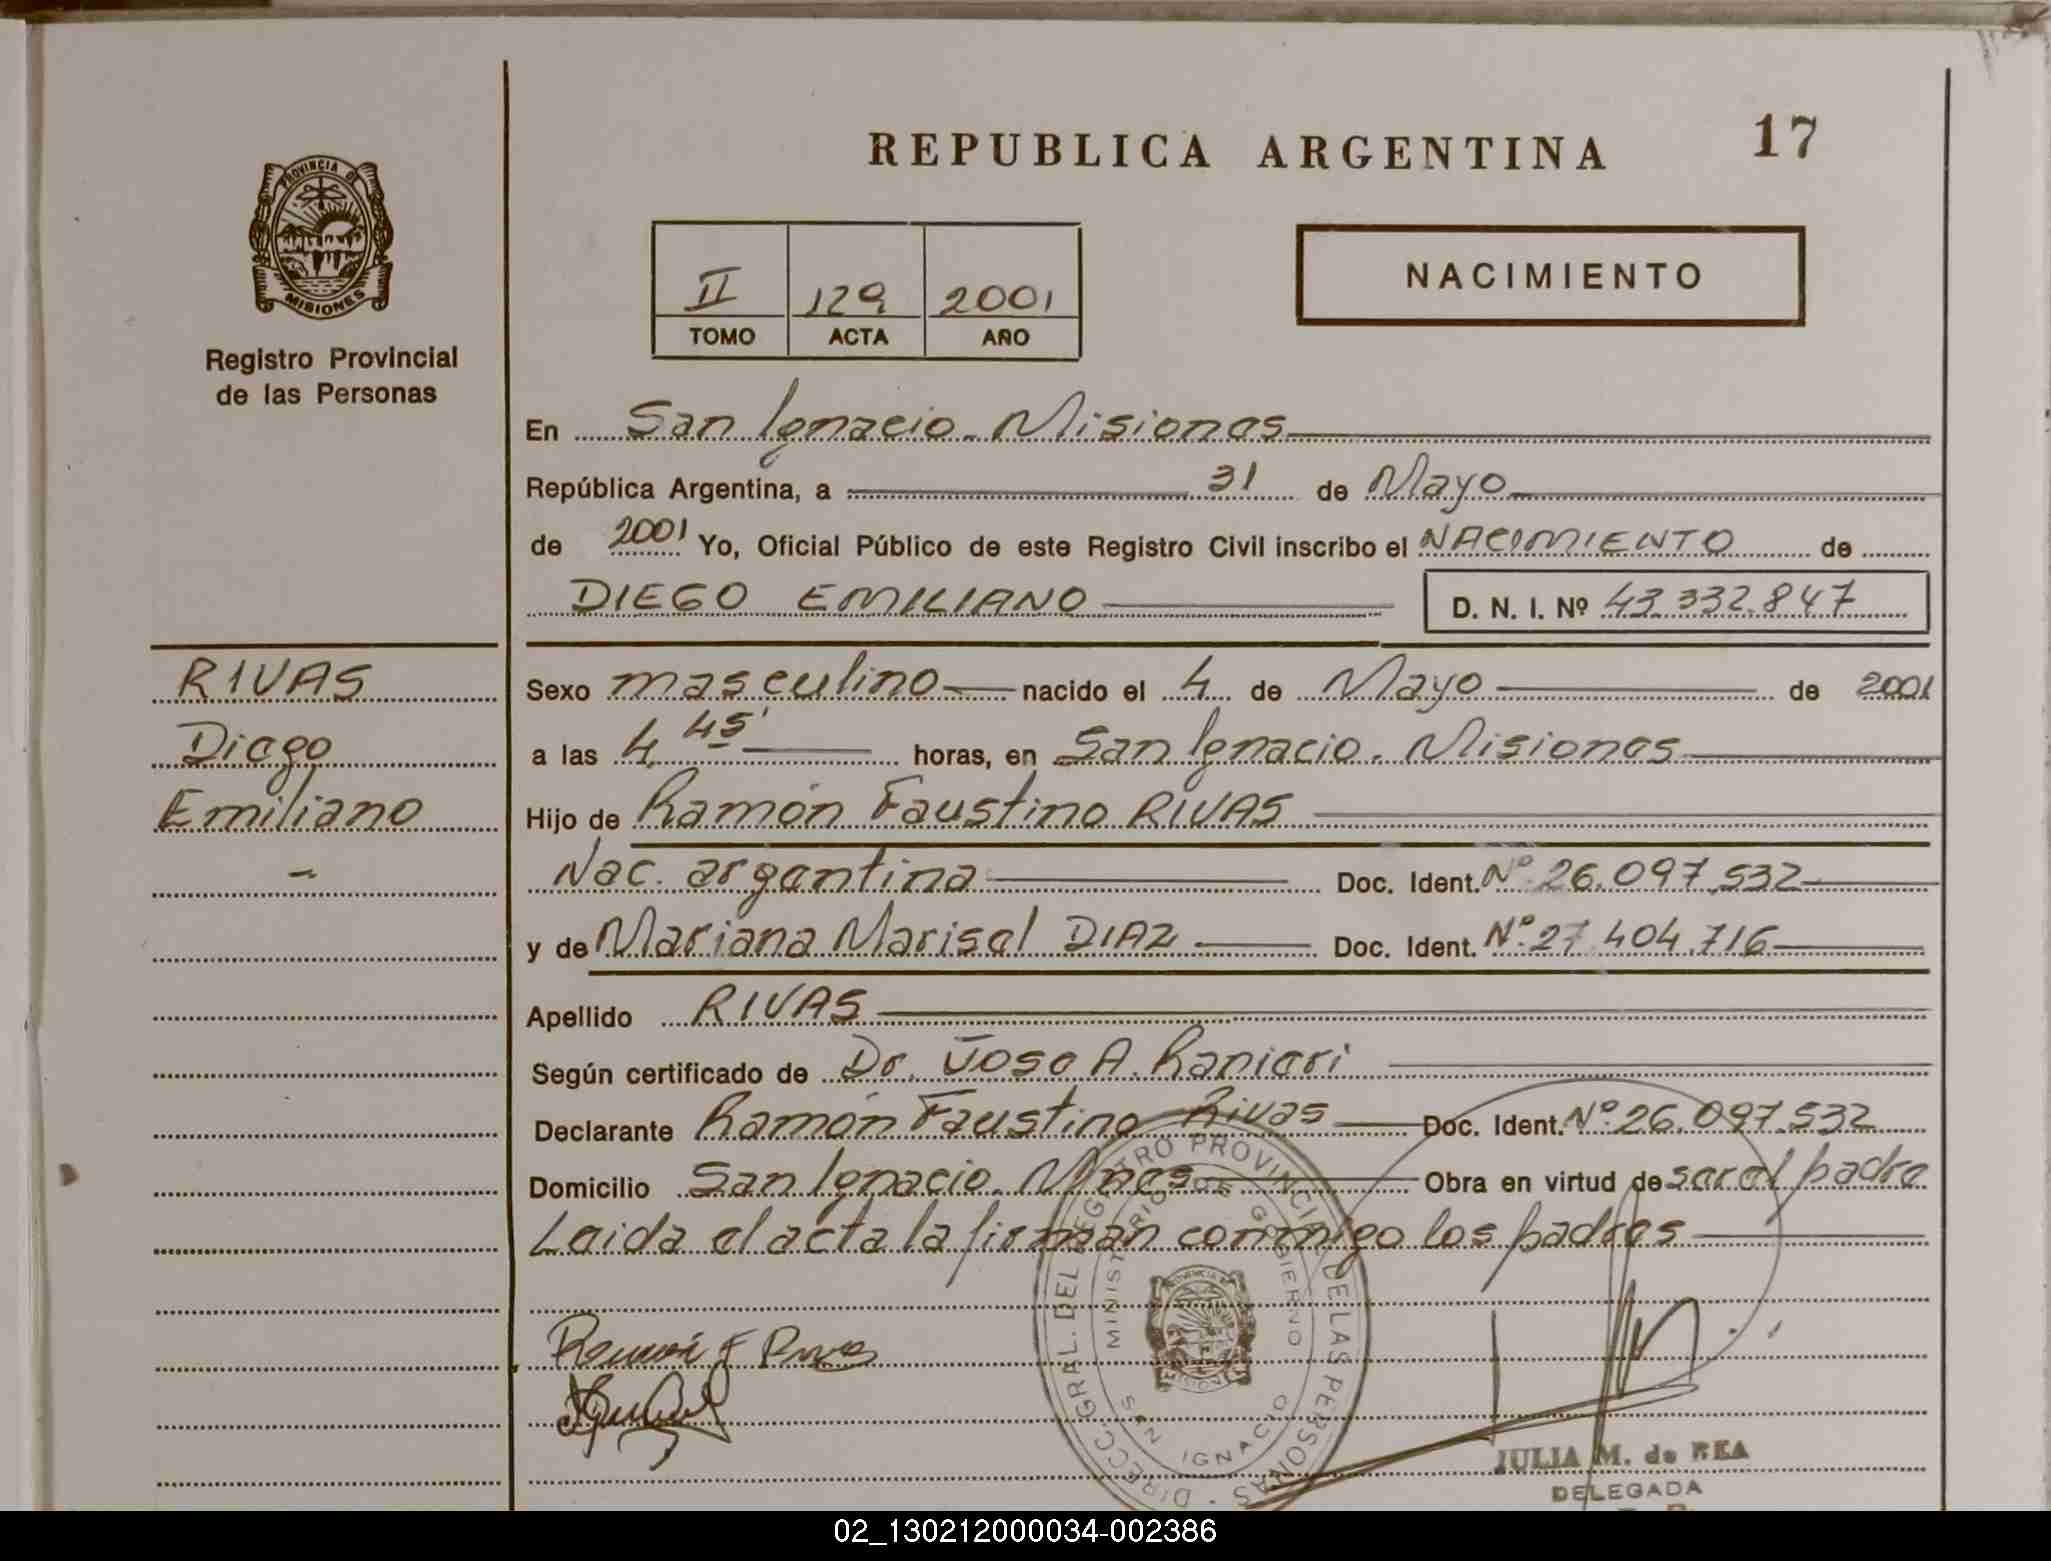 REPUBLICA ARGENTINA
17
PROVINCIA DE
MISIONES
Registro Provincial
de las Personas
II 129 2001
TOMO ACTA AÑO
NACIMIENTO
En San Ignacio. Misiones
República Argentina, a 31 de Mayo
de 2001 Yo, Oficial Público de este Registro Civil inscribo el NACIMIENTO de
DIEGO EMILIANO D. N. I. Nº 43.332.847
RIVAS
Diego
Emiliano
Sexo masculino nacido el 4 de Mayo de 2001
a las 4 45' horas, en San Ignacio. Misiones
Hijo de Ramón Faustino RIVAS
Nac. argentina Doc. Ident. Nº 26.097.532
y de Mariana Marisel DIAZ Doc. Ident. Nº 27.404.716
Apellido RIVAS
Según certificado de Dr. Jose A. Ranieri
Declarante Ramón Faustino Rivas Doc. Ident. Nº 26.097.532
Domicilio San Ignacio. Mnes Obra en virtud de ser el padre
Leida el acta la firman conmigo los padres
DIRECC. GRAL. DEL REGISTRO PROVINCIAL DE LAS PERSONAS
MINISTERIO DE GOBIERNO
SAN IGNACIO
JULIA M. de REA
DELEGADA
02_130212000034-002386